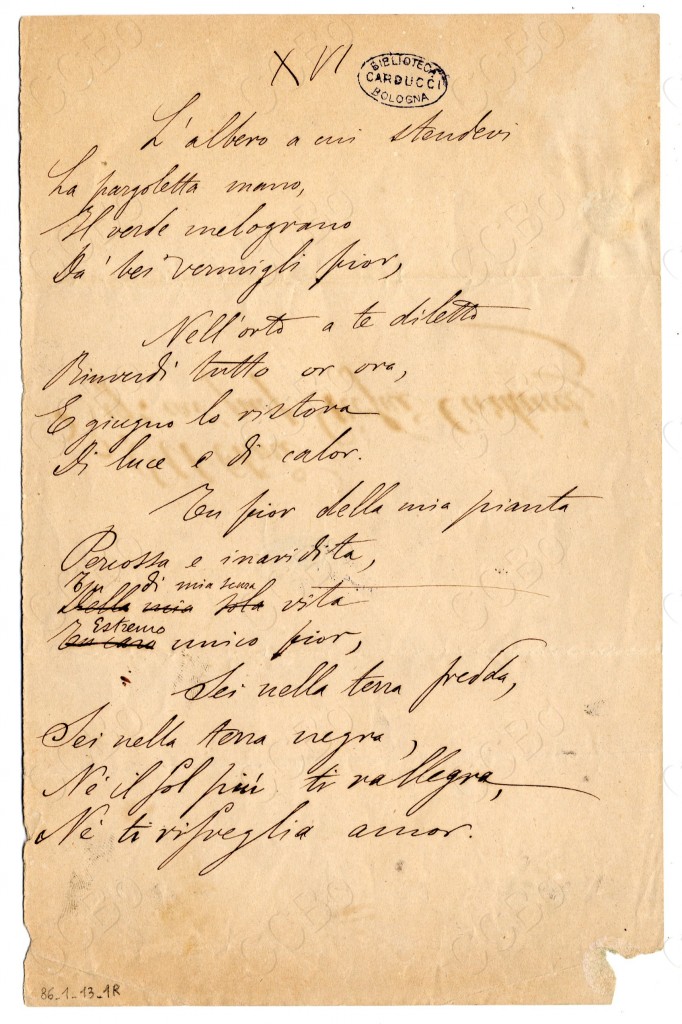 XVI
BIBLIOTECA
CARDUCCI
BOLOGNA
L'albero a cui stendevi
La pargoletta mano,
Il verde melograno
Da' bei vermigli fior,
Nell'orto a te diletto
Rinverdì tutto or ora,
E giugno lo ristora
Di luce e di calor.
Tu fior della mia pianta
Percossa e inaridita,
Tu di mia senza
Della mia sola vita
Estremo
Tu caro unico fior,
Sei nella terra fredda,
Sei nella terra negra,
Nè il sol più ti rallegra,
Nè ti risveglia amor.
86_1_13_1R